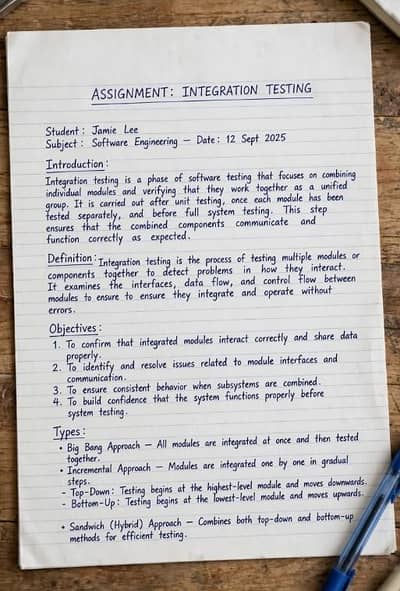 ASSIGNMENT: INTEGRATION TESTING
Student: Jamie Lee
Subject: Software Engineering – Date: 12 Sept 2025
Introduction:
Integration testing is a phase of software testing that focuses on combining
individual modules and verifying that they work together as a unified
group. It is carried out after unit testing, once each module has been
tested separately, and before full system testing. This step
ensures that the combined components communicate and
function correctly as expected.
Definition: Integration testing is the process of testing multiple modules or
components together to detect problems in how they interact.
It examines the interfaces, data flow, and control flow between
modules to ensure to ensure they integrate and operate without
errors.
Objectives:
1. To confirm that integrated modules interact correctly and share data
properly.
2. To identify and resolve issues related to module interfaces and
communication.
3. To ensure consistent behavior when subsystems are combined.
4. To build confidence that the system functions properly before
system testing.
Types:
• Big Bang Approach – All modules are integrated at once and then tested
together.
• Incremental Approach – Modules are integrated one by one in gradual
steps.
- Top-Down: Testing begins at the highest-level module and moves downwards.
- Bottom-Up: Testing begins at the lowest-level module and moves upwards.
• Sandwich (Hybrid) Approach – Combines both top-down and bottom-up
methods for efficient testing.